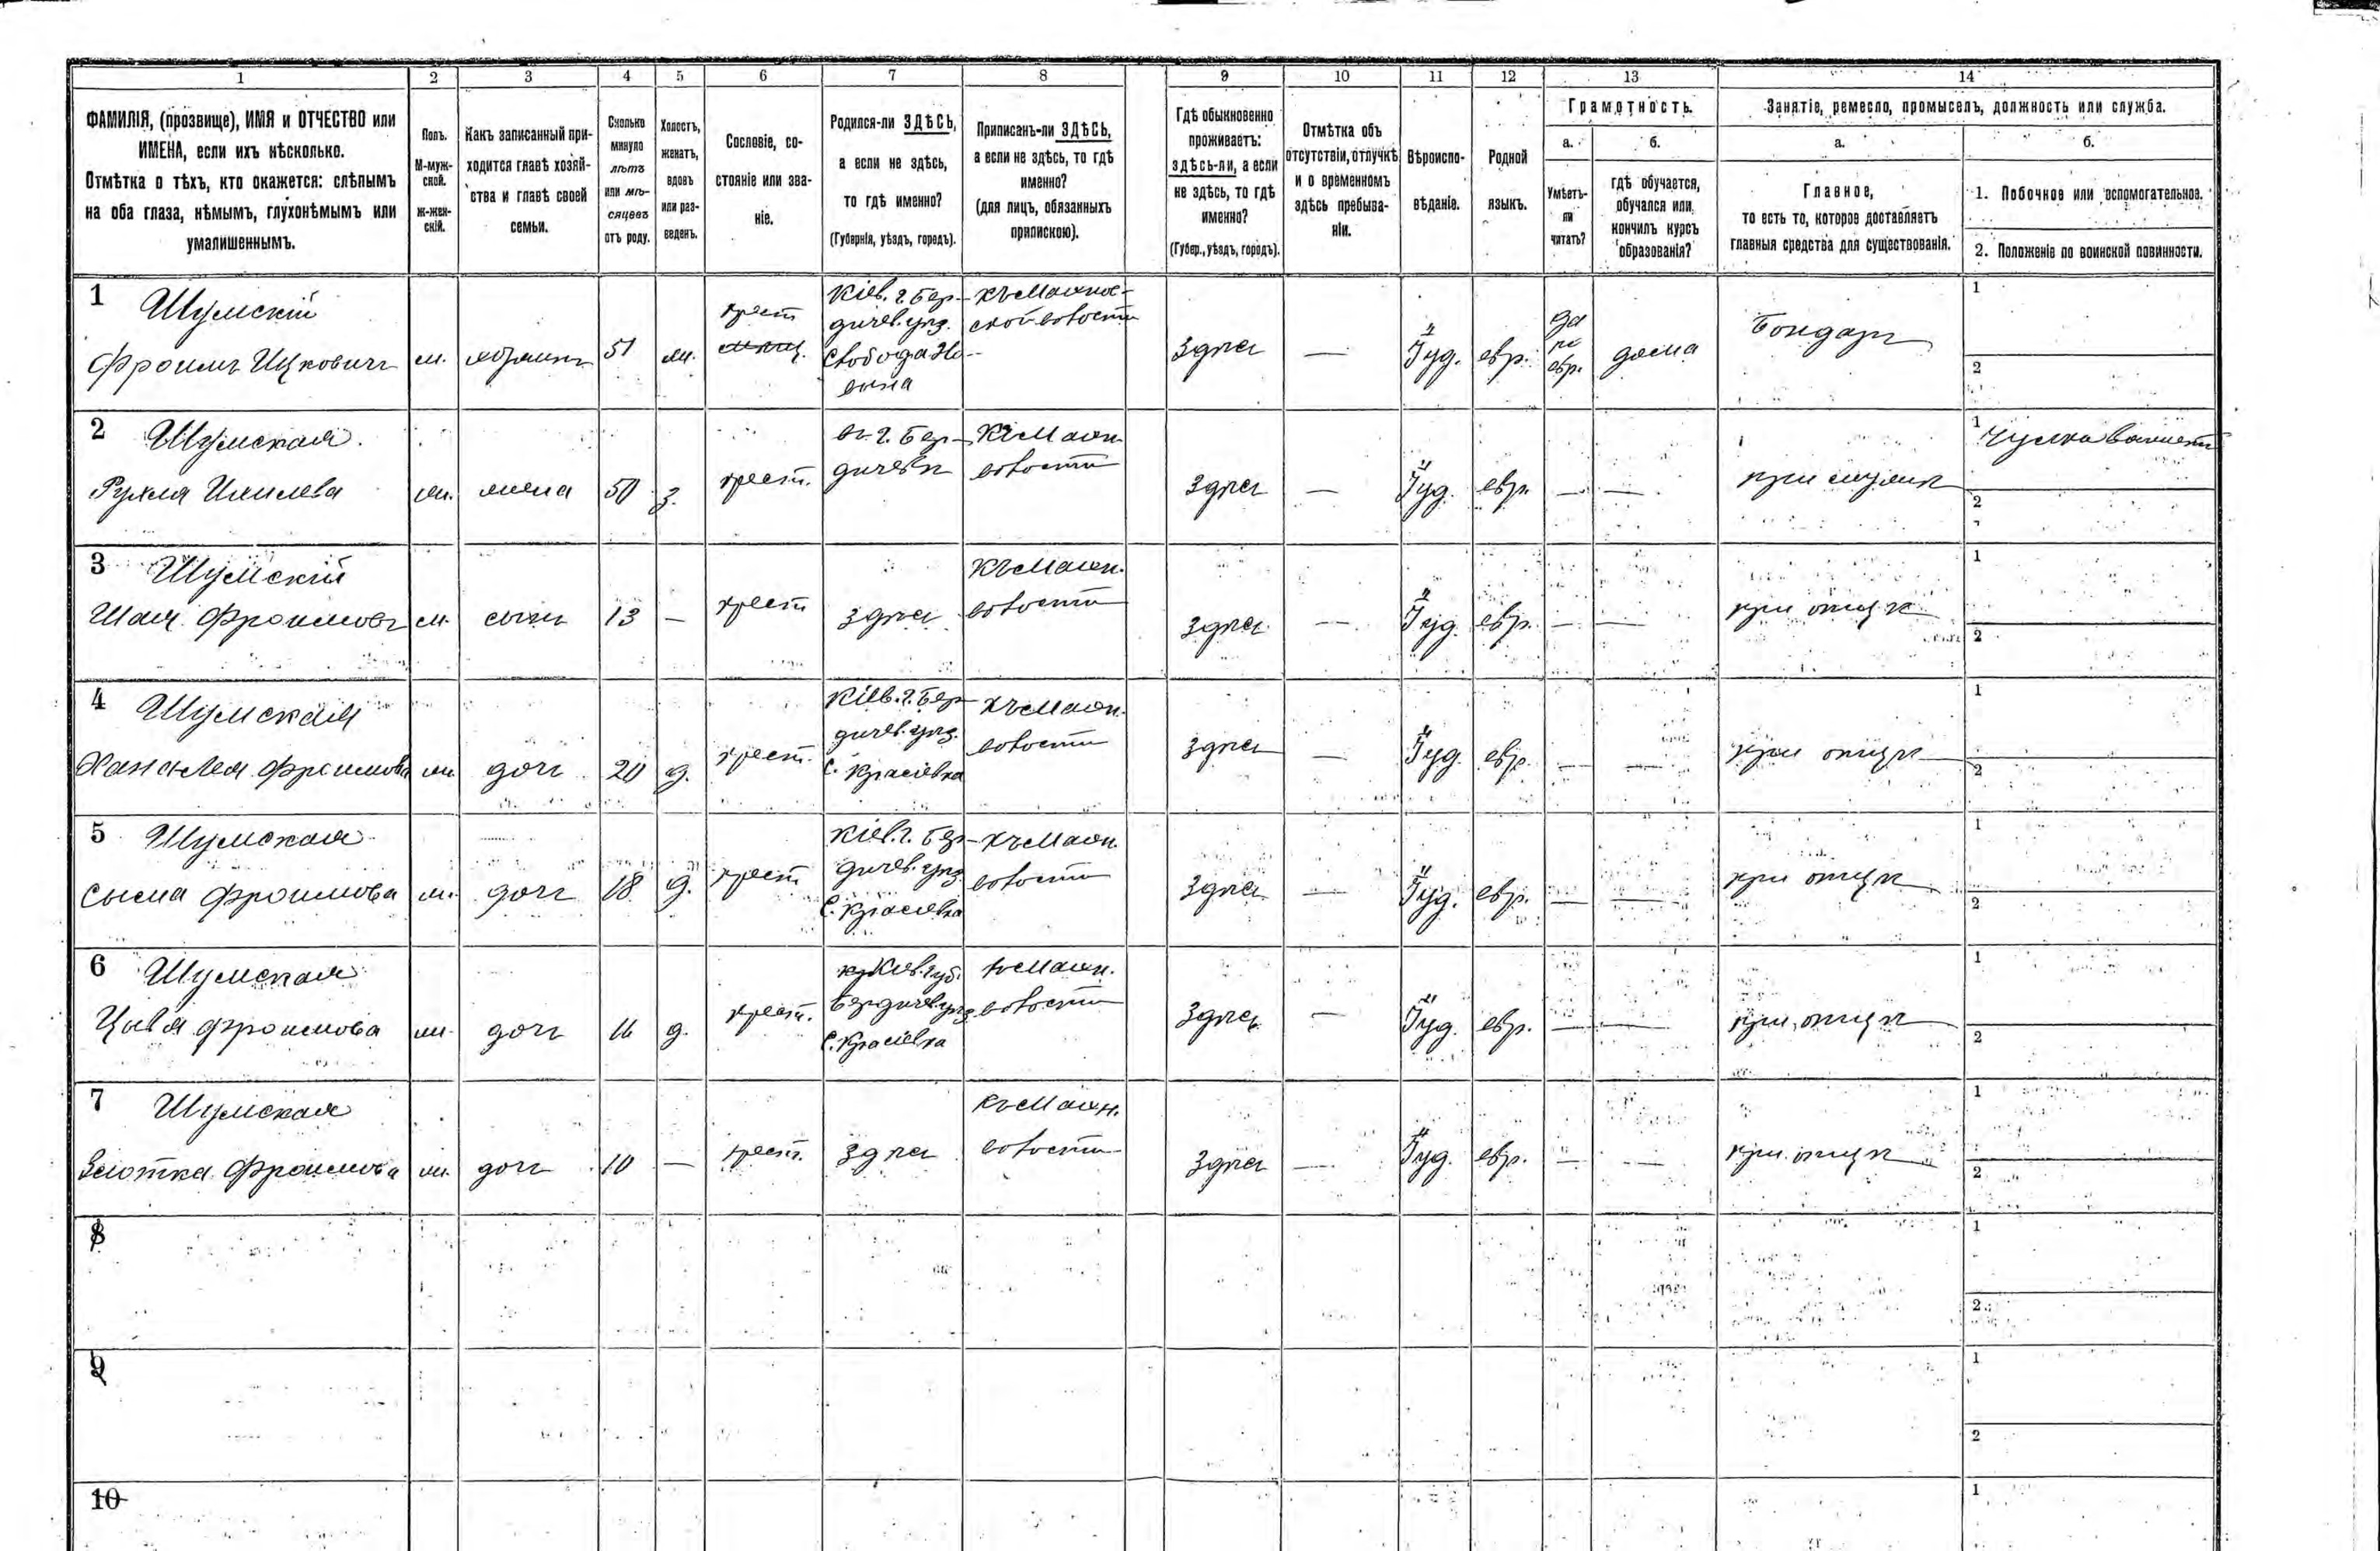 1 2 3 4 5 6 7 8 9 10 11 12 13 14
ФАМИЛІЯ, (прозвище), ИМЯ и ОТЧЕСТВО или
ИМЕНА, если ихъ нѣсколько.
Отмѣтка о тѣхъ, кто окажется: слѣпымъ
на оба глаза, нѣмымъ, глухонѣмымъ или
умалишеннымъ.
Полъ.
М-муж-
ской.
ж-жен-
скій.
Какъ записанный при-
ходится главѣ хозяй-
ства и главѣ своей
семьи.
Сколько
минуло
лѣтъ
или мѣ-
сяцевъ
отъ роду.
Холостъ,
женатъ,
вдовъ
или раз-
веденъ.
Сословіе, со-
стояніе или зва-
ніе.
Родился-ли ЗДѢСЬ,
а если не здѣсь,
то гдѣ именно?
(Губернія, уѣздъ, городъ).
Приписанъ-ли ЗДѢСЬ,
а если не здѣсь, то гдѣ
именно?
(для лицъ, обязанныхъ
припискою).
Гдѣ обыкновенно
проживаетъ:
здѣсь-ли, а если
не здѣсь, то гдѣ
именно?
(Губер., уѣздъ, городъ).
Отмѣтка объ
отсутствіи, отлучкѣ
и о временномъ
здѣсь пребыва-
ніи.
Вѣроиспо-
вѣданіе.
Родной
языкъ.
Грамотность.
а.
Умѣетъ-
ли
читать?
б.
гдѣ обучается,
обучался или
кончилъ курсъ
образованія?
Занятіе, ремесло, промыселъ, должность или служба.
а.
Главное,
то есть то, которое доставляетъ
главныя средства для существованія.
б.
1. Побочное или вспомогательное.
2. Положеніе по воинской повинности.
1 Шумскій
Фроимъ Ицковичъ
м.
хозяинъ
51
ж.
крест
мѣщ.
Кіев. г. Бер-
дичев. уѣз.
Слобода
къ Махнов-
ской волости
здѣсь
—
Іуд.
евр.
да
по
евр.
дома
Бондарь
1
2
2 Шумская
Рухля
ж.
жена
50
з.
крест.
въ г. Бер-
дичевѣ
къ Махн.
волости
здѣсь
—
Іуд.
евр.
—
—
при мужѣ
1
2
3 Шумскій
Фроимовъ
м.
сынъ
13
—
крест
здѣсь
Къ Махн.
волости
здѣсь
—
Іуд.
евр.
—
—
при отцѣ
1
2
4 Шумская
Хана Лея Фроимова
ж.
дочь
20
д.
крест.
Кіев. г. Бер-
дичев. уѣз.
с. Красовка
къ Махн.
волости
здѣсь
—
Іуд.
евр.
—
—
при отцѣ
1
2
5 Шумская
Сыма Фроимова
ж.
дочь
18
д.
крест
Кіев. г. Бер-
дичев. уѣз.
с. Красовка
къ Махн.
волости
здѣсь
—
Іуд.
евр.
—
—
при отцѣ
1
2
6 Шумская
Цывя Фроимова
ж.
дочь
16
д.
крест.
Кіев. губ.
Бердичев. уѣз.
с. Красовка
къ Махн.
волости
здѣсь
—
Іуд.
евр.
—
—
при отцѣ
1
2
7 Шумская
Злотка Фроимова
ж.
дочь
10
—
крест.
здѣсь
къ Махн.
волости
здѣсь
—
Іуд.
евр.
—
—
при отцѣ
1
2
8
1
2
9
1
2
10
1